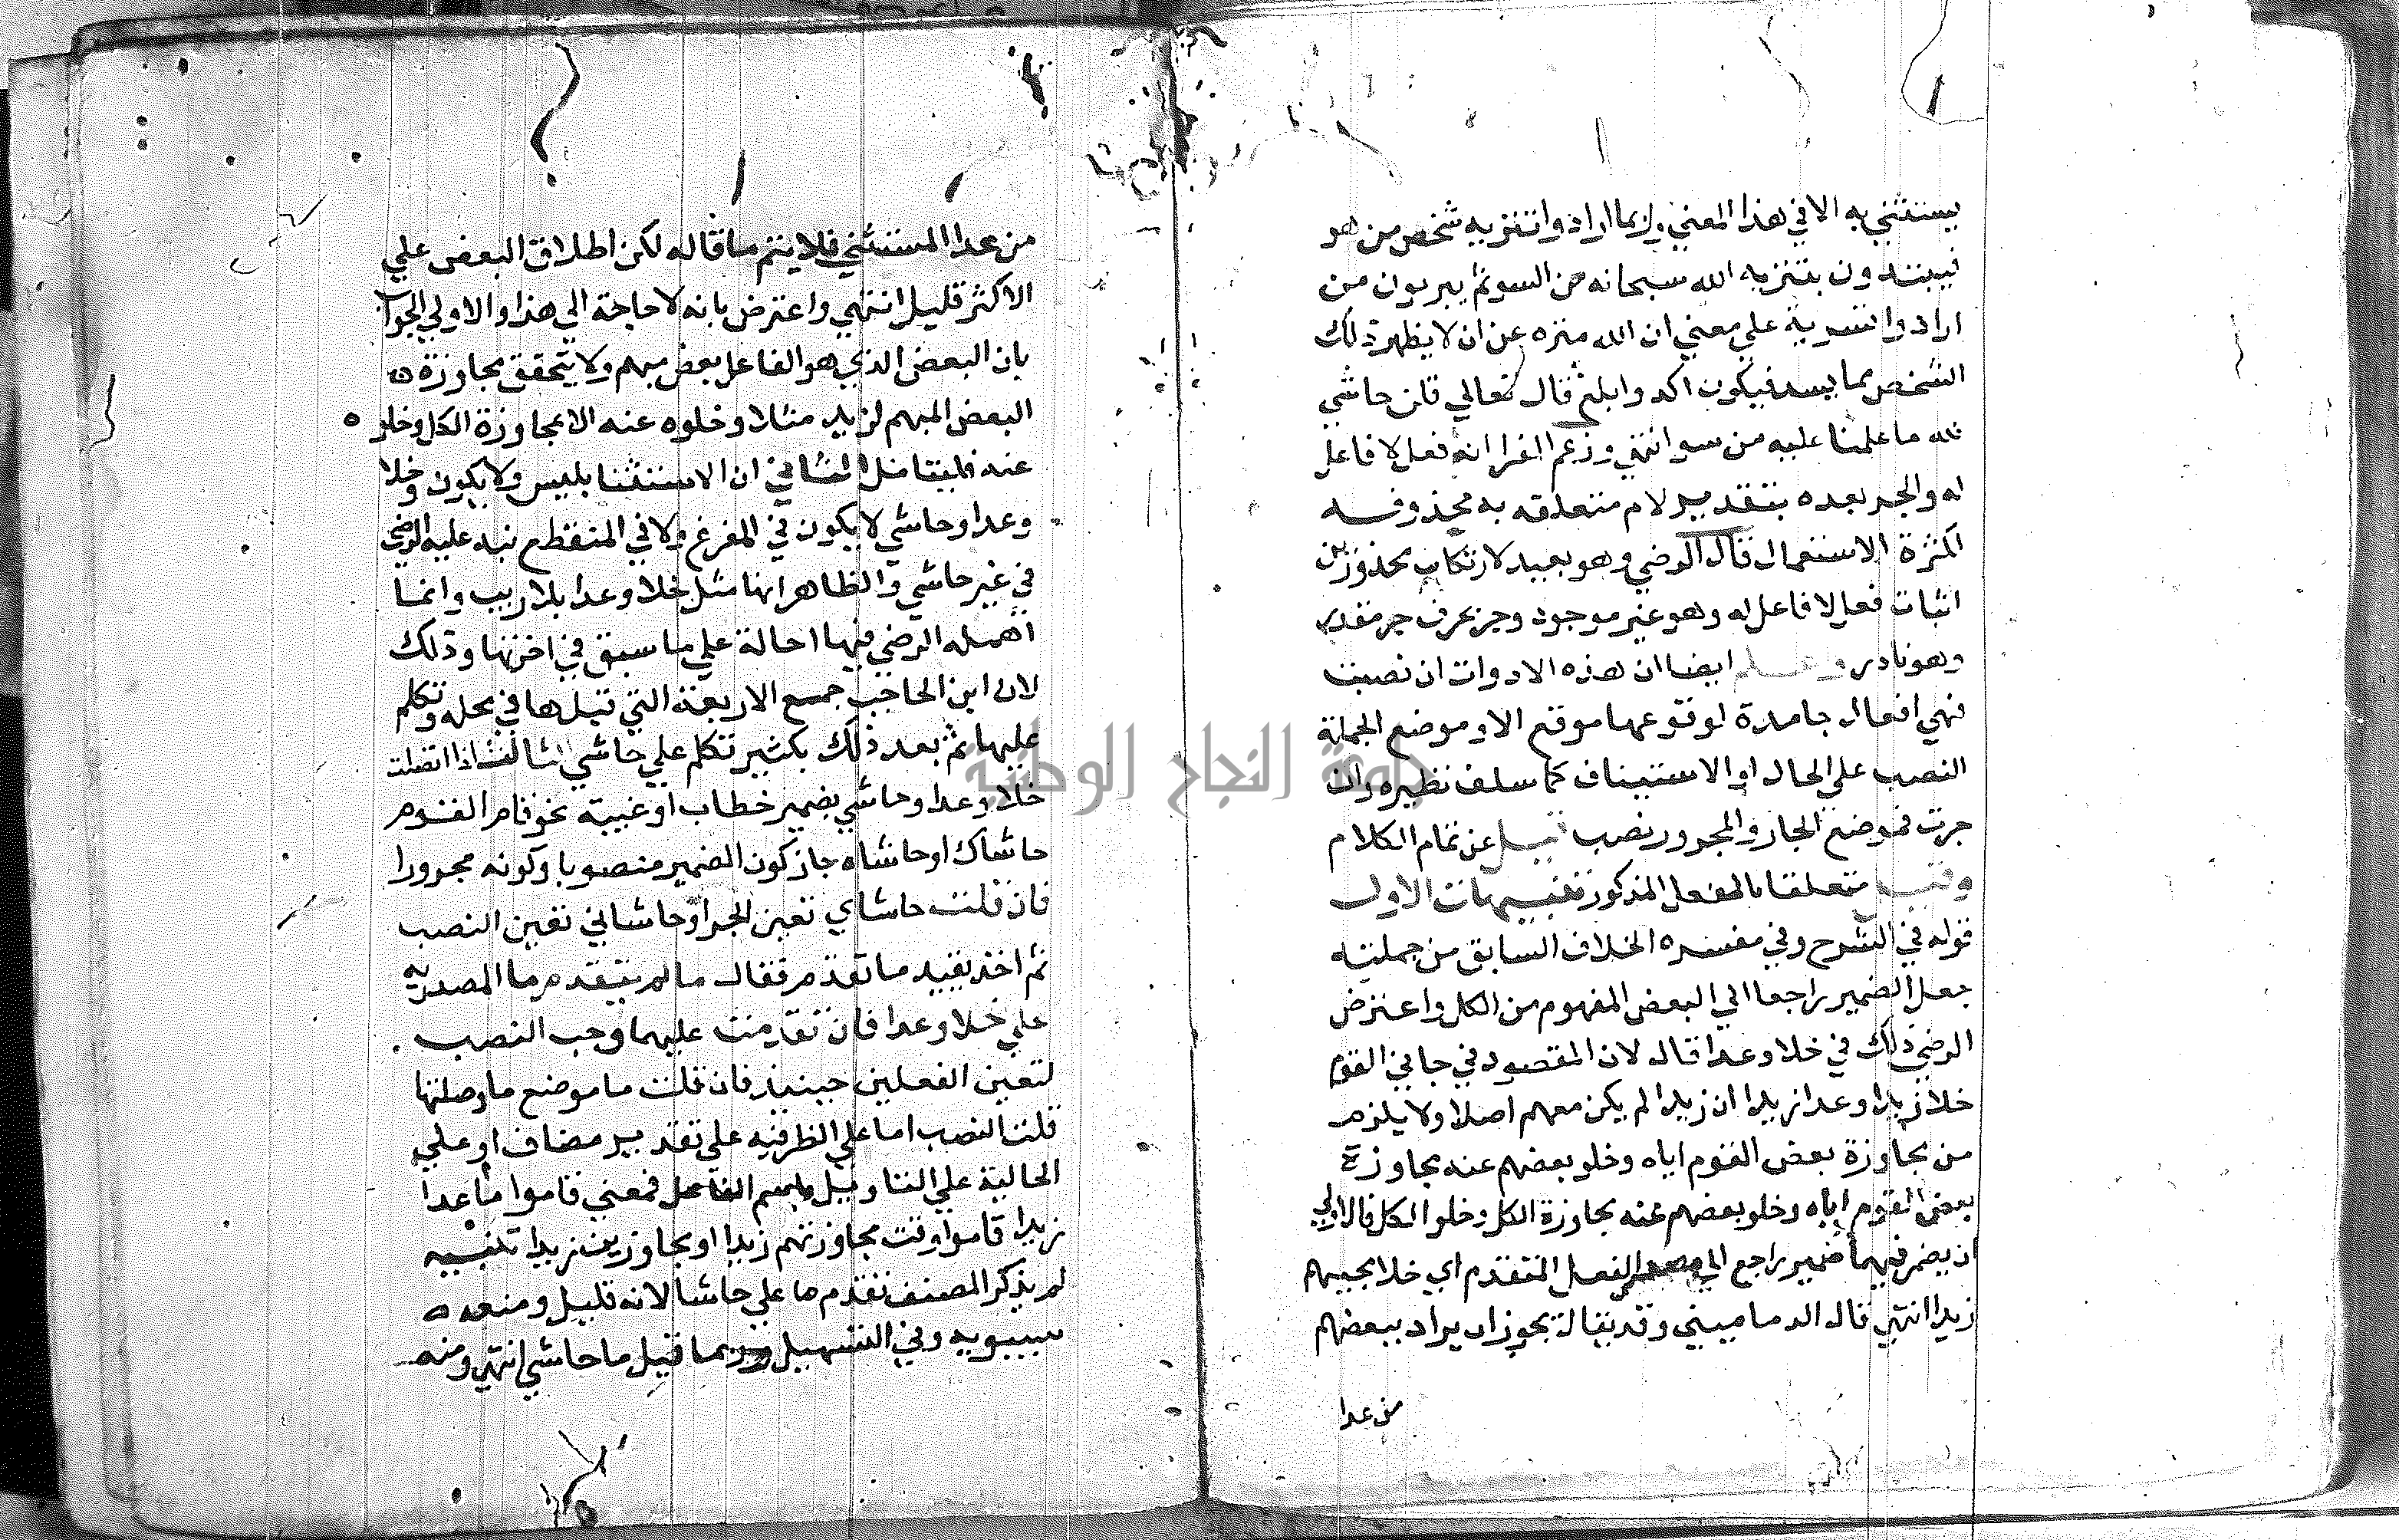 يستثني به الا في هذا المعني وربما ارادوا تنزيه شخص من هو
فيبتدون بتنزيه الله سبحانه من السوثم يبريون من
ارادوا تبرية علي معني ان الله منزه عن ان لا يظهر ذلك
الشخص مما يسد فيكون اكد وابلغ قال تعالي قلن حاشي
لله ما علمنا عليه من سو انتهي وزعم الفرا انه فعل لا فاعل
له والجر بعده بتقدير لام متعلقه به محذوفه
لكثرة الاستعمال قال الرضي وهو بعيد لارتكاب محذوزين
اثبات فعل لا فاعل له وهو غير موجود وجر بحرف جر مقدر
وهو نادر واعلم ايضا ان هذه الادوات ان نصبت
فهي افعال جامدة لوقوعها موقع الا وموضع الجملة
النصب علي الحال او الاستيناف كما سلف نظيره وان
جرت فموضع الجار والمجرور نصب قيل عن تمام الكلام
وقيل متعلقا بالفعل المذكور تنبيهات الاول
قوله في الشرح وفي مفسره الخلاف السابق من جملته
جعل الضمير راجعا الي البعض المفهوم من الكل واعترض
الرضي ذلك في خلا وعدا قال لان المقصود في جاني القوم
خلا زيدا وعدا زيدا ان زيدا لم يكن معهم اصلا ولا يلزم
من مجاوزة بعض القوم اياه وخلو بعضهم عنه مجاوزة
بعض القوم اياه وخلو بعضهم عنه مجاوزة الكل وخلوا الكل فالاولي
ان يضمر فيهما ضمير راجع الي مصدر الفعل المتقدم اي خلا مجيهم
زيدا انتهي قال الدماميني وقد يقال يجوز ان يراد ببعضهم
من عدا
من عدا المستثني فلا يتم ما قاله لكن اطلاق البعض علي
الاكثر قليل انتهي واعترض بانه لا حاجة الي هذا والاولي الجواب
بان البعض الذي هو الفاعل بعض مبهم ولا يتحقق مجاوزة
البعض المبهم لزيد مثلا وخلوه عنه الا بمجاوزة الكل وخلو
عنه فليتامل الثاني ان الاستثنا بليس ولا يكون وخلا
وعدا وحاشي لا يكون في المفرغ ولا في المنقطع نبه عليه الرضي
في غير حاشي والظاهر انها مثل خلا وعدا بلا ريب وانما
اهمله الرضي فيها احالة علي ما سبق في اخزنها وذلك
لان ابن الحاجب جمع الاربعة التي قبلها في محله وتكلم
عليها ثم بعد ذلك بكثير تكلم علي حاشي الثالث اذا اتصلت
خلا وعدا وحاشي بضمير خطاب او غيبة نحو قام القوم
حاشاك او حاشاه جاز كون الضمير منصوبا وكونه مجرورا
فان قلت حاشاي تعين الجر او حاشاني تعين النصب
ثم اخذ يقيد ما تقدم فقال ما لم يتقدم ما المصدريه
علي خلا وعدا فان تقدمت عليهما وجب النصب
لتعين الفعلين حينيذ فان قلت ما موضع ما وصلتها
قلت النصب اما علي الظرفيه علي تقدير مضاف او علي
الحالية علي التاويل باسم الفاعل فمعني قاموا ما عدا
زيدا قاموا وقت مجاوزتهم زيدا او مجاوزين زيدا تنبيه
لم يذكر المصنف تقدم ما علي حاشا لانه قليل ومنعه
سيبويه وفي التسهيل وربما قيل ما حاشي انتهي ومنه
جامعة النجاح الوطنية